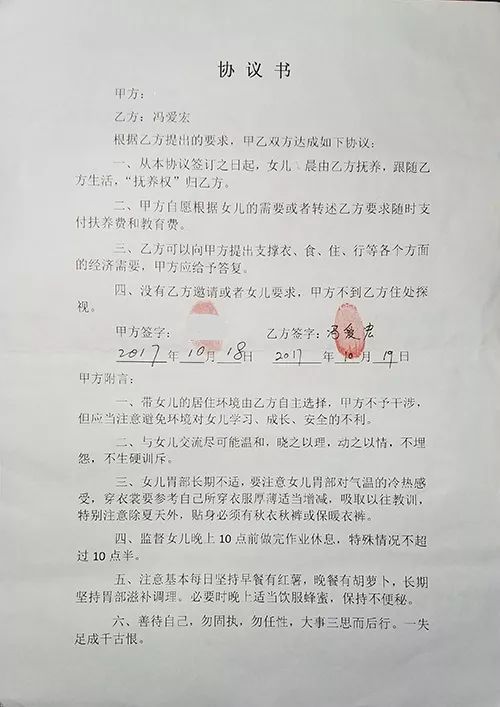 协议书
甲方：
乙方：冯爱宏
根据乙方提出的要求，甲乙双方达成如下协议：
一、从本协议签订之日起，女儿 晨由乙方抚养，跟随乙
方生活，“抚养权”归乙方。
二、甲方自愿根据女儿的需要或者转述乙方要求随时支
付扶养费和教育费。
三、乙方可以向甲方提出支撑衣、食、住、行等各个方面
的经济需要，甲方应给予答复。
四、没有乙方邀请或者女儿要求，甲方不到乙方住处探
视。
甲方签字： 乙方签字：冯爱宏
2017年10月18日 2017年10月19日
甲方附言：
一、带女儿的居住环境由乙方自主选择，甲方不予干涉，
但应当注意避免环境对女儿学习、成长、安全的不利。
二、与女儿交流尽可能温和，晓之以理，动之以情，不埋
怨，不生硬训斥。
三、女儿胃部长期不适，要注意女儿胃部对气温的冷热感
受，穿衣裳要参考自己所穿衣服厚薄适当增减，吸取以往教训，
特别注意除夏天外，贴身必须有秋衣秋裤或保暖衣裤。
四、监督女儿晚上10点前做完作业休息，特殊情况不超
过10点半。
五、注意基本每日坚持早餐有红薯，晚餐有胡萝卜，长期
坚持胃部滋补调理。必要时晚上适当饮服蜂蜜，保持不便秘。
六、善待自己，勿固执，勿任性，大事三思而后行。一失
足成千古恨。